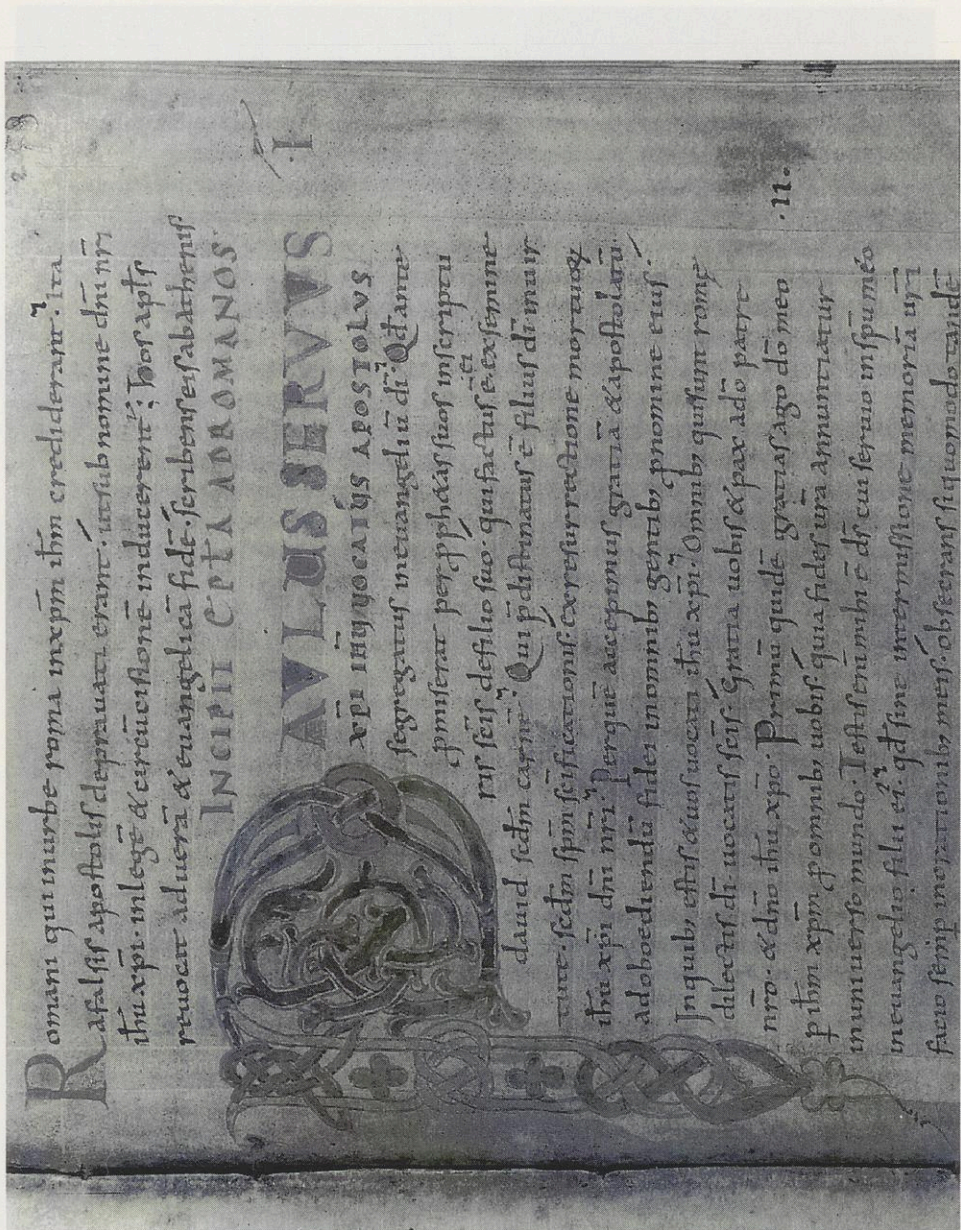 Romani qui inurbe roma inxp̄m ih̄m crediderant. ita
afalsis apostolis deprauati erant. utsub nomine dn̄i nr̄i
ih̄u xp̄i. inlegē & circūcisionē inducerent; hos apl̄s
reuocat aduerā & euangelicā fidē. scribens eis abathenis
INCIPIT EPL̄A ADROMANOS
PAVLUS SERVVS .I
xp̄i ih̄u VOCATVS APOSTOLVS
segregatus ineuangeliū dī. Qd̄ ante
promiserat per pphetas suos inscriptu
ris sc̄is defilio suo. quifactus ē ei exsemine
dauid sc̄dm carnē. Qui p̄distinatus ē filius dī inuir
tute. sc̄dm sp̄m sc̄ificationis. exresurrectione mortuoꝝ
ih̄u xp̄i dn̄i nr̄i. Perquē accepimus gratiā & apostolatū.
adoboediendū fidei inomnib; gentib; pronomine eius.
Inquib; estis & uos uocati ih̄u xp̄i. Omnib; quisunt romę
dilectis dī. uocatis sc̄is. Gratia uobis & pax adō patre
nr̄o. & dn̄o ih̄u xp̄o. Primū quidē gratias ago dō meo .II.
p ih̄m xp̄m. pro omnib; uobis. quia fides urā annuntiatur
inuniuerso mundo. Testis enī mihi ē ds̄ cuiseruio insp̄u meo
ineuangelio filii ei'. qd̄ sine intermissione memoriā urī
facio semp inorationib; meis. obsecrans siquomodo tandē